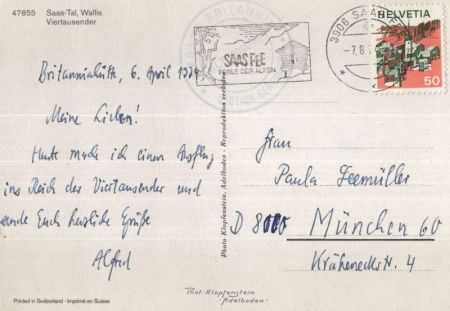 47855 Saas-Tal, Wallis
Viertausender
BRITANNIA
SAAS FEE
PERLE DER ALPEN
3906 SAAS
-7.8.
HELVETIA
50
Britanniahütte, 6. April 1979
Meine Lieben!
Heute mache ich einen Ausflug
ins Reich der Viertausender und
sende Euch herzliche Grüße
Alfred
Frau
Paula Seemüller
D 8000 München 60
Krähenecks N. 4
Photo Klopfenstein, Adelboden - Reproduktion verboten
Phot. Klopfenstein
Adelboden
Printed in Switzerland - Imprimé en Suisse